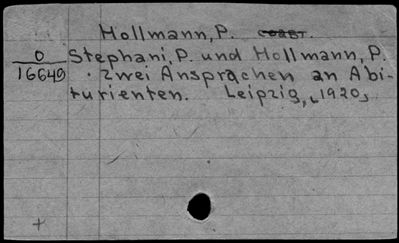 Hollmann, P. coавт.
O
16640
Stephani, P. und Hollmann, P.
Zwei Ansprachen an Abi-
turienten. Leipzig, 1920,
+